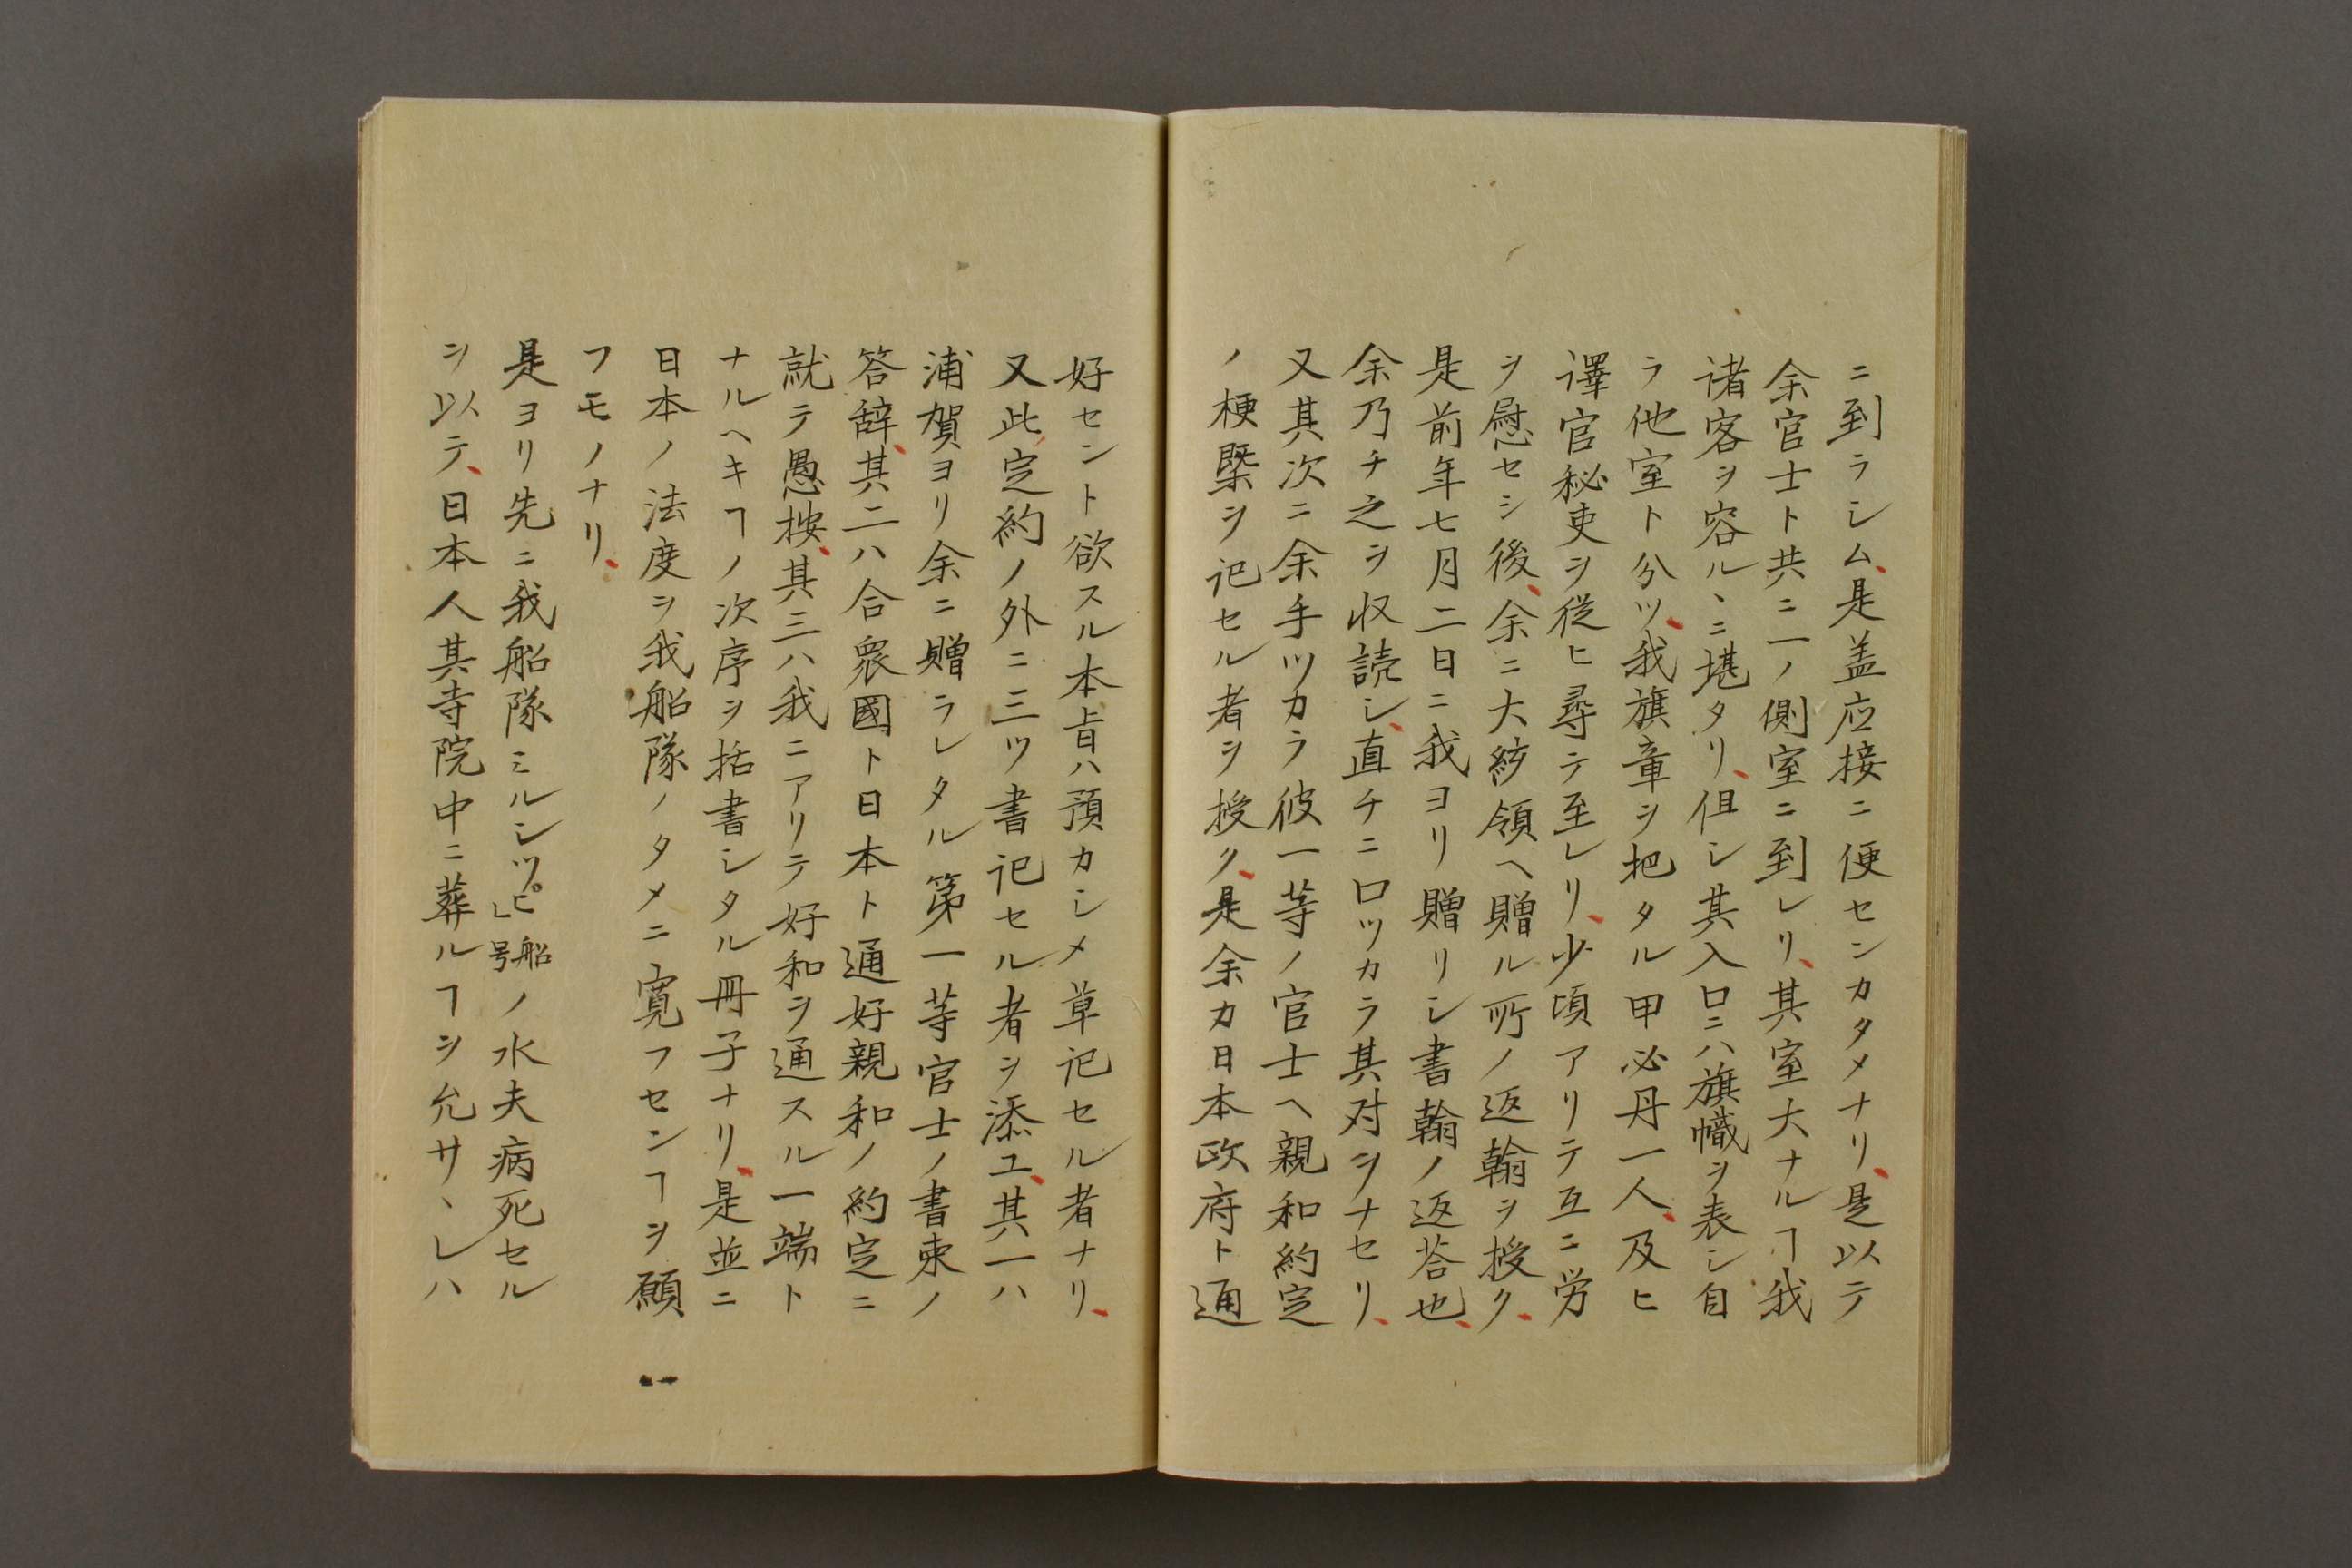 ニ到ラシム、是盖应接ニ便センカタメナリ、是以テ
余官士ト共ニ一ノ側室ニ到レリ、其室大ナルヿ我
诸客ヲ容ル、ニ堪タリ、但シ其入口ニハ旗幟ヲ表シ自
ラ他室ト分ツ、我旗章ヲ把タル甲必丹一人、及ヒ
譯官秘吏ヲ従ヒ尋テ至レリ、少頃アリテ互ニ労
ヲ慰セシ後、余ニ大統領ヘ贈ル所ノ返翰ヲ授ク、
是前年七月二日ニ我ヨリ贈リシ書翰ノ返答也、
余乃チ之ヲ収読シ、直チニ口ツカラ其対ヲナセリ、
又其次ニ余手ツカラ彼一等ノ官士ヘ親和約定
ノ梗槩ヲ記セル者ヲ授ク、是余カ日本政府ト通
好セント欲スル本旨ハ預カシメ草記セル者ナリ、
又此定約ノ外ニ三ツ書記セル者ヲ添ユ、其一ハ
浦賀ヨリ余ニ贈ラレタル第一等官士ノ書柬ノ
答辞、其二ハ合衆國ト日本ト通好親和ノ約定ニ
就テ愚按、其三ハ我ニアリテ好和ヲ通スル一端ト
ナルヘキヿノ次序ヲ括書シタル冊子ナリ、是並ニ
日本ノ法度ヲ我船隊ノタメニ寛フセンヿヲ願
フモノナリ、
是ヨリ先ニ我船隊ミルシツピ」船号ノ水夫病死セル
ヲ以テ、日本人其寺院中ニ葬ルヿヲ允サ、レハ